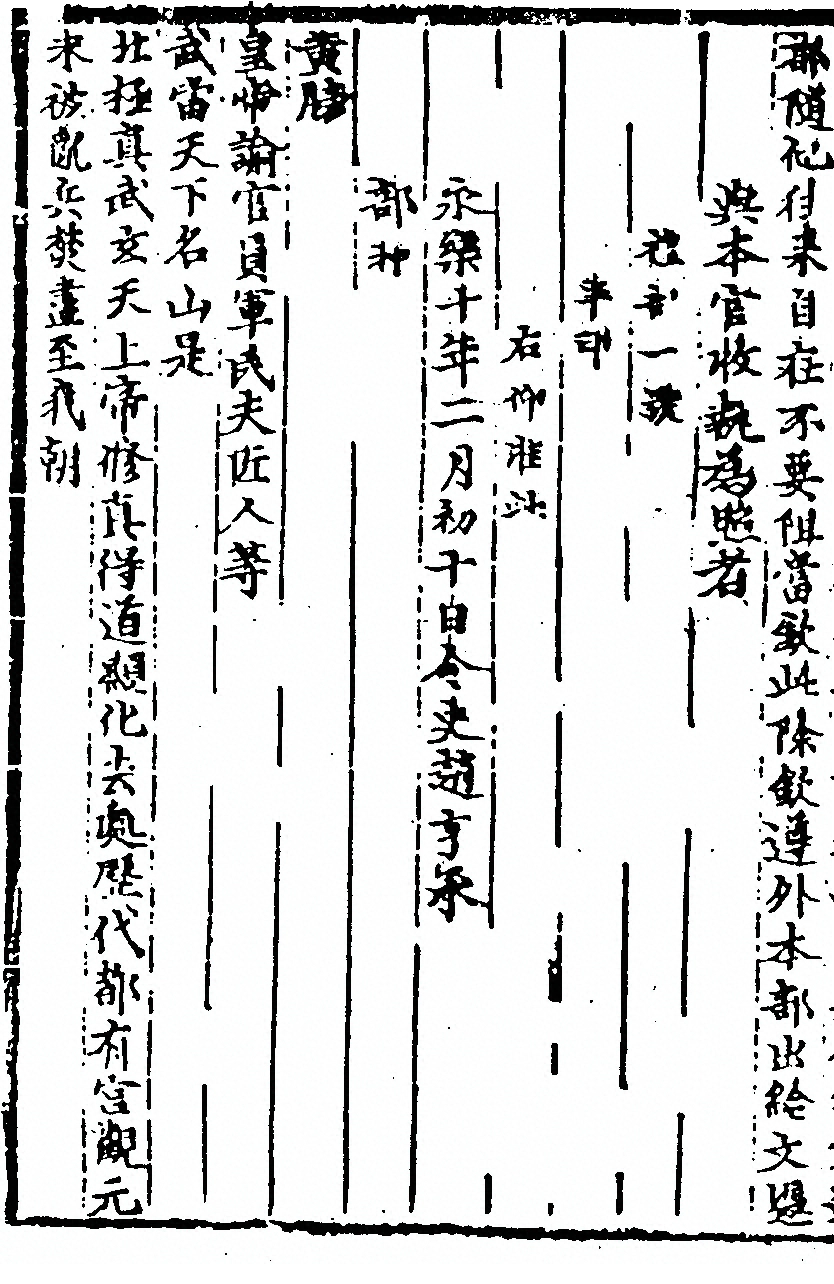 都隨他往来自在不要阻當欽此除欽遵外本部出給文憑
與本官收執為照者
礼部一號
半印
右仰准此
永樂十年二月初十日令吏趙亨承
部押
黄榜
皇帝諭官員軍民夫匠人等
武當天下名山是
北極真武玄天上帝修真得道顯化去處歷代都有宮觀元
末被亂兵焚盡至我朝